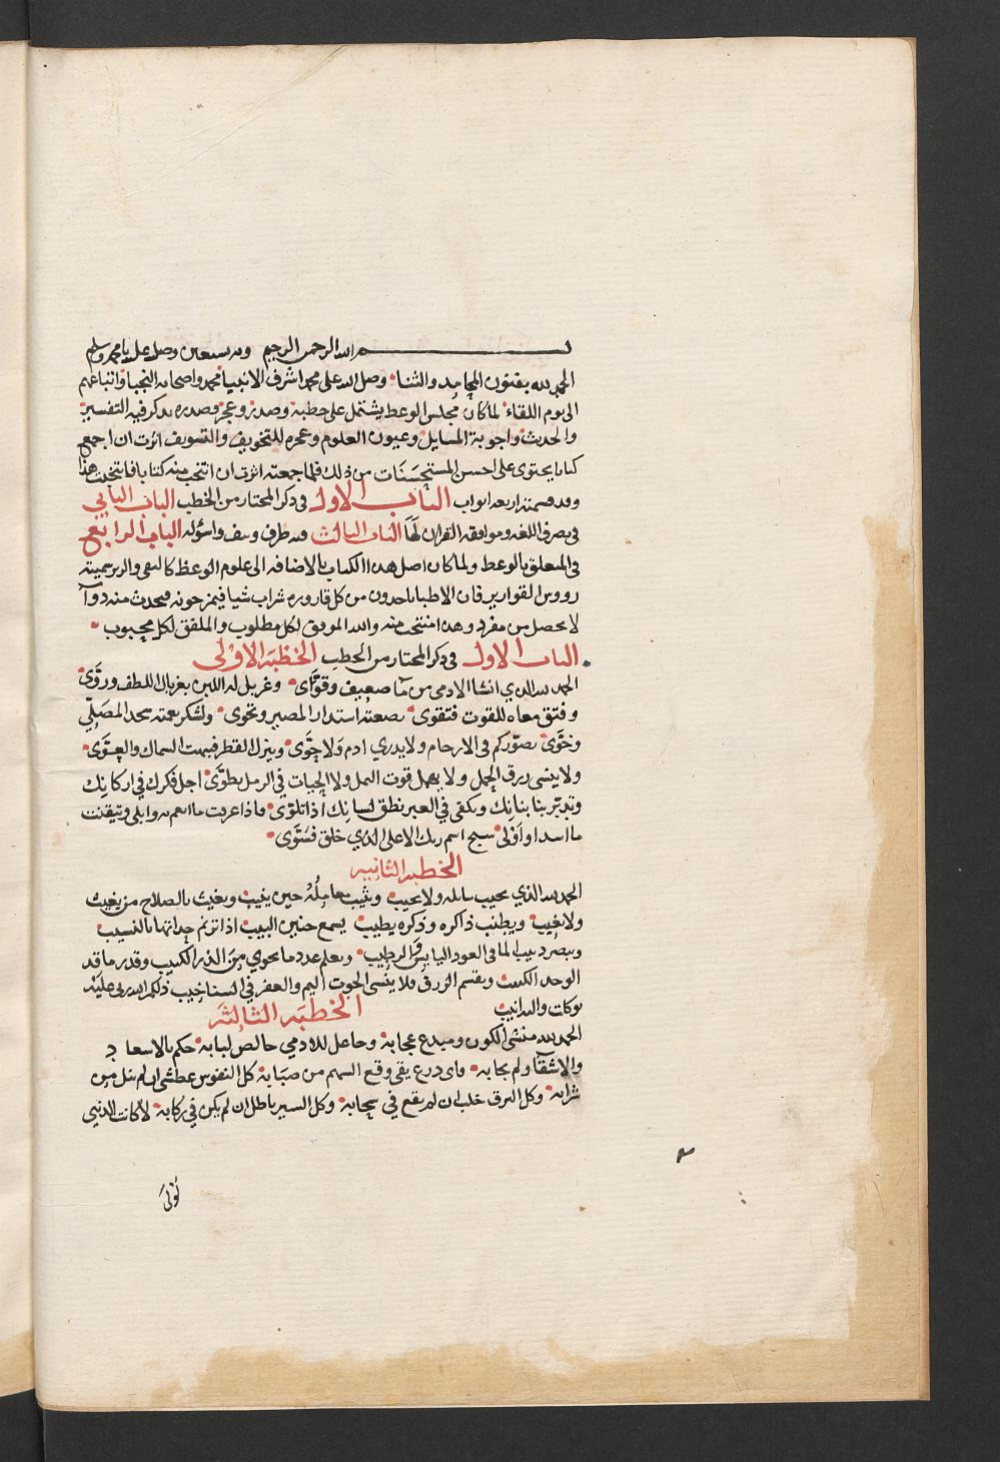 بسم الله الرحمن الرحيم وبه نستعين وصل على سيدنا محمد وسلم
الحمد لله بفنون المحامد والثنا وصل الله على محمد اشرف الانبيا محمد واصحابه النجبا واتباعهم
الى يوم اللقاء لما كان مجلس الوعظ يشتمل على خطبة وصدر وعجز وصدره يذكر فيه التفسير
والحديث واجوبة المسايل وعيون العلوم وعجزه للتخويف والتسويف اثرت ان اجمع
كتابا يحتوى على احسن المستحسنات من ذلك فلما جمعته اثرت ان انتخب منه كتابا فانتخبت هذا
وقد قسمته اربعه ابواب الباب الاول في ذكر المختار من الخطب الباب الثاني
في تصرف اللغه وموافقه القران لها الباب الثالث فيه طرف ونتف واسوله الباب الرابع
في المتعلق بالوعظ ولما كان اصل هذا الكتاب بالاضافه الى علوم الوعظ كالنقى والزبر سميته
رووس القوارير فان الاطبا ياخذون من كل قاروره شراب شيا فيمزجونه فيحدث منه دوآ
لا يحصل من مفرد وهذا منتخب منه والله الموفق لكل مطلوب والملفق لكل محبوب
الباب الاول في ذكر المختار من الخطب الخطبة الاولى
الحمد لله الذي انشا الادمى من مآ ضعيف وقوّاى وغربل له اللبن بغربال اللطف وروّى
وفتق معاه للقوت فتقوى بصعته استدار المصير وتحوى ولشكر نعمته سجد المصلي
وخوّى تصوّركم في الارحام ولا يدري ادم ولا حوّى وينزل القطر فيبهت السماك والعوّى
ولا ينسى رزق الحمل ولا يهمل قوت النمل ولا الحيات في الرمل تطوّى اجل فكرك في اركانك
وتدبّر بنا بنانك ويكفى في العبر نطق لسانك اذا تلوّى فاذا عرفت ما انعم به وابلى وتيقنت
ما اسدا واولى سبح اسم ربك الاعلى الذي خلق فسوّى
الخطبه الثانيه
الحمد لله الذي يجيب سايله ولا يخيب ويثيب معامله حين ينيب ويغيث بالصلاح من يغيث
ولا يغيب ويطنب ذاكره وذكره يطيب يسمع حنين النيب اذا ترنم حداتها بالنسيب
ويبصر دبيب الما في العود اليابس والرطيب ويعلم عدد ما يحوي من الذر الكثيب وقدر ما قد
الوخد الكثيب ويقسم الرزق فلا ينسى الحوت اليم والعفر في السنا خيب ذلكم الله ربي عليه
توكلت واليه انيب
الخطبه الثالثة
الحمد لله منشى الكون ومبدع عجابه وجاعل للادمي خالص لبابه حكم بالاسعاد
والاشقآ ولم يحابه فاى درع يقى وقع السهم من صيّابه كل النفوس عطشى ان لم تنل من
شرابه وكل البرق خلب ان لم يقع في سحابه وكل السير باطل ان لم يكن في ركابه لا كانت الدنيى